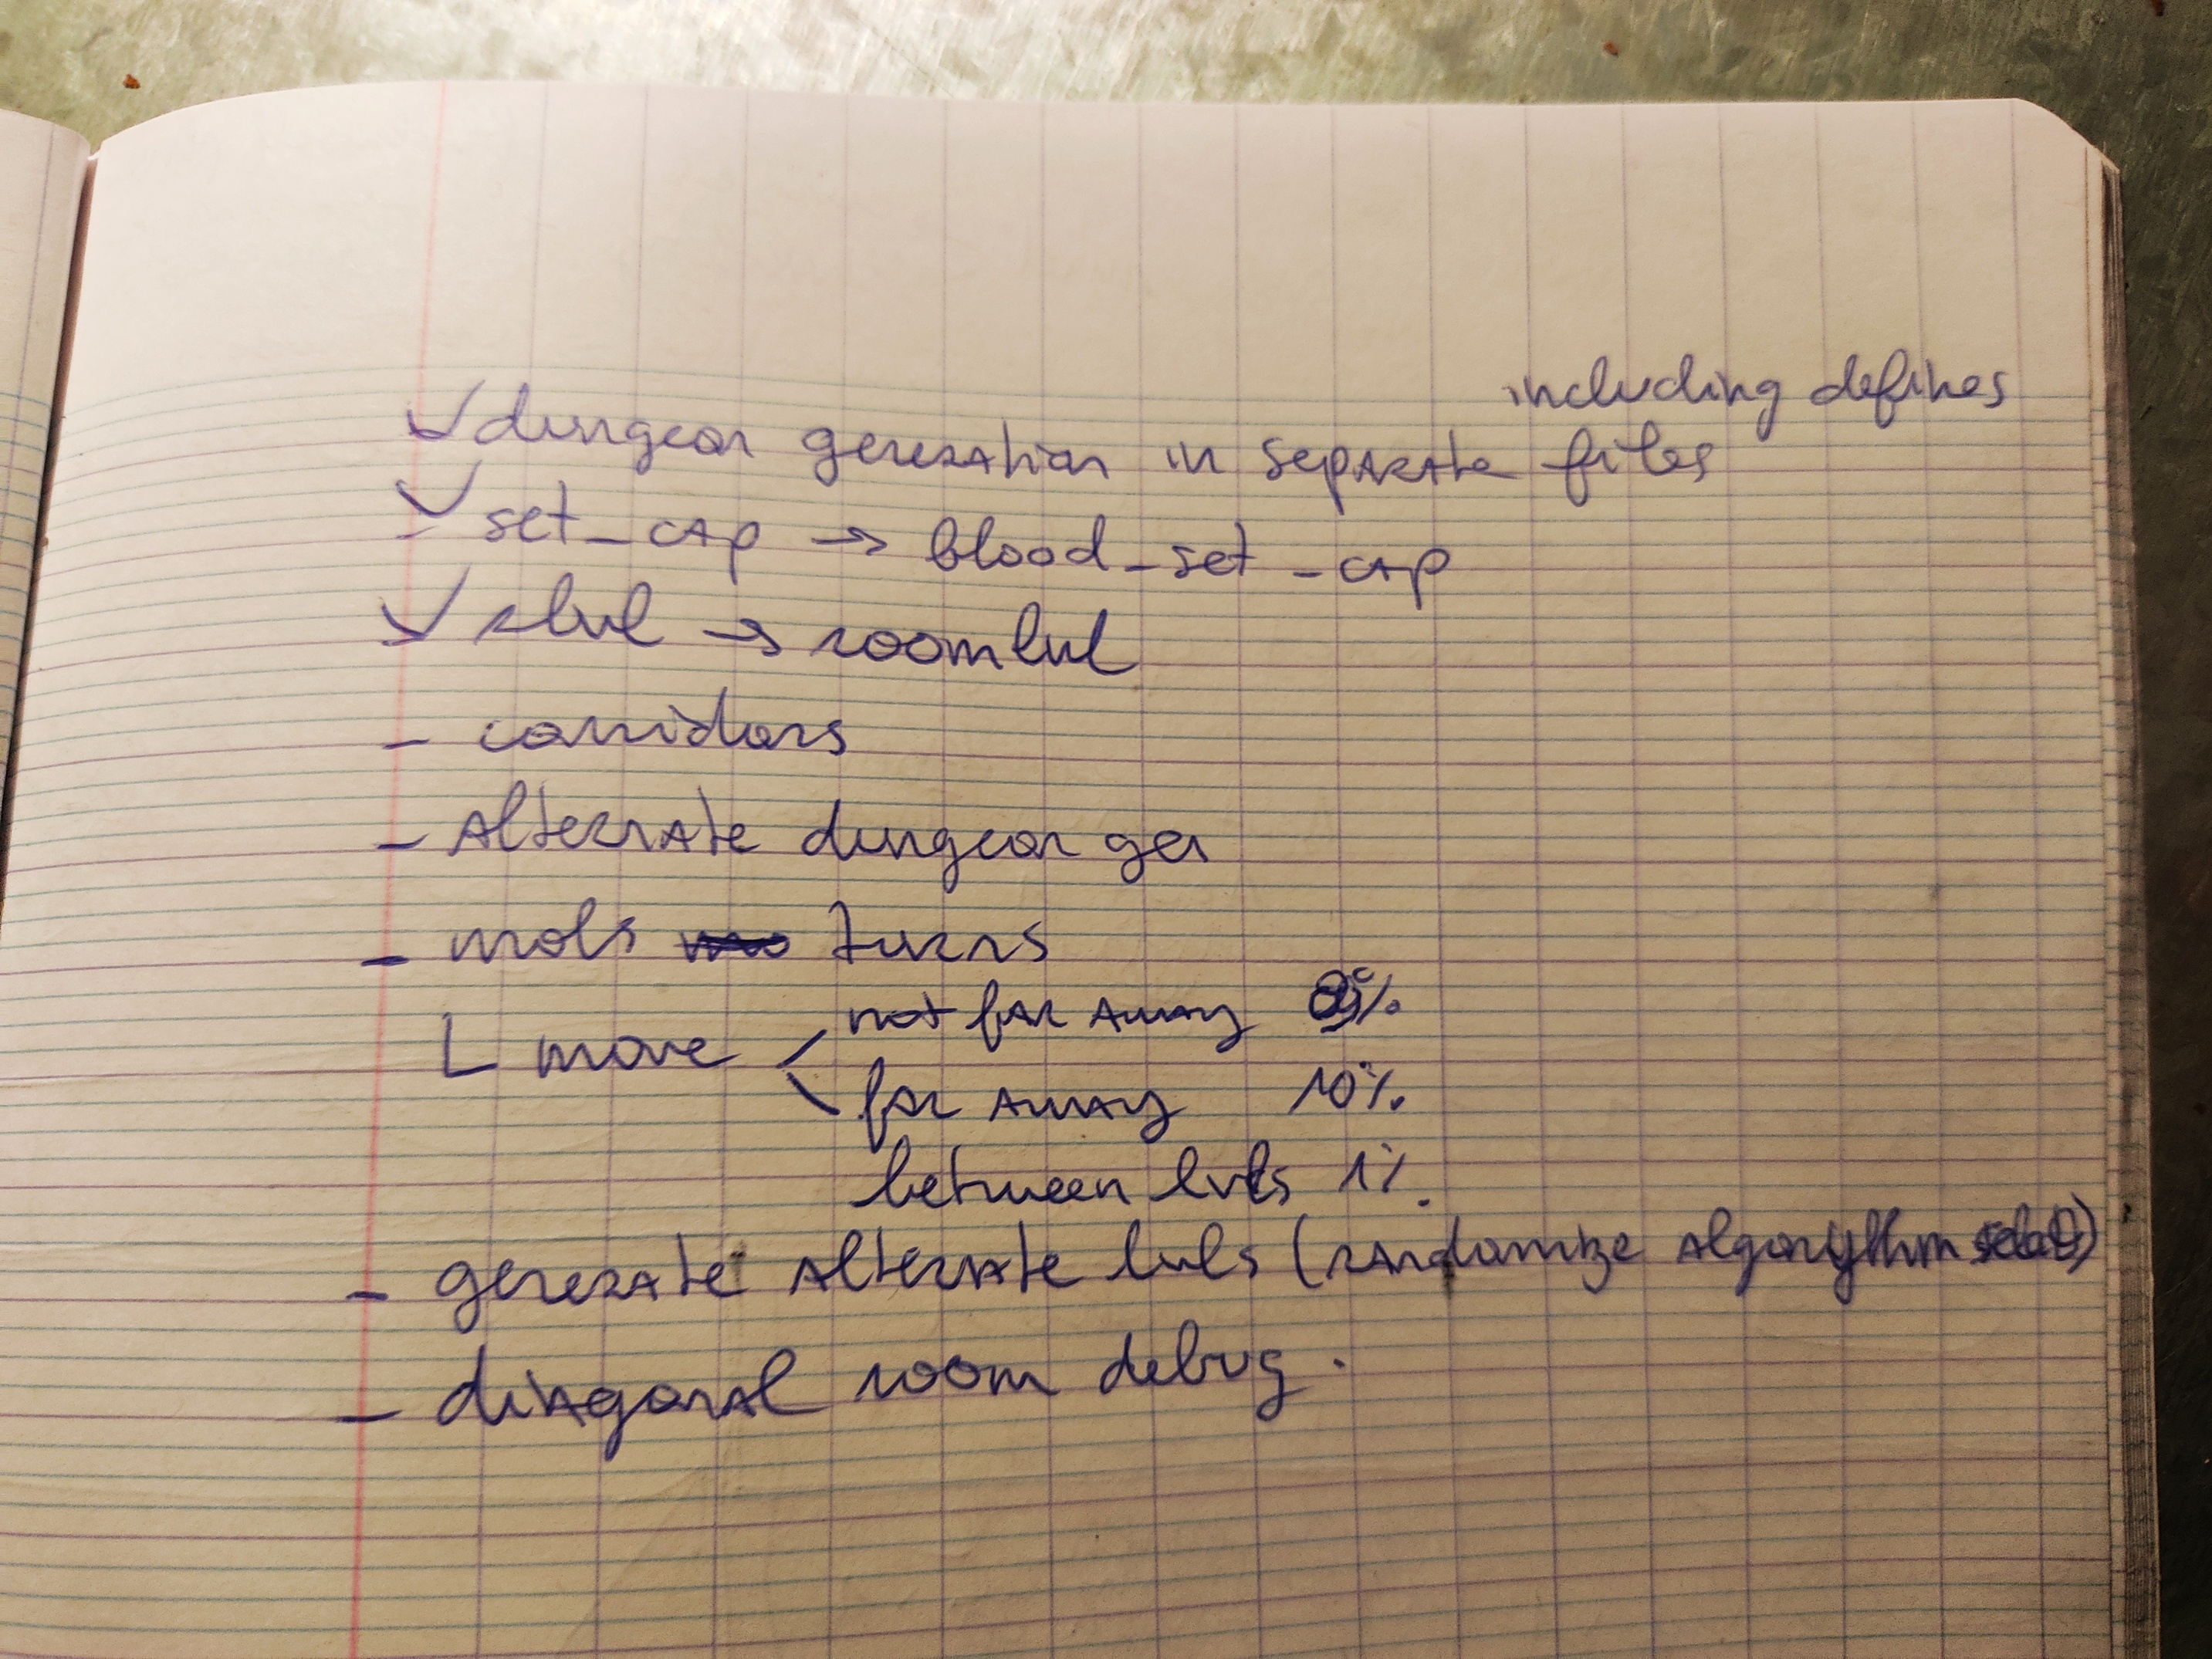 including defines
✓ dungeon generation in separate files
✓ set_cap → blood_set_cap
✓ rlvl → roomlvl
- corridors
- Alternate dungeon gen
- mobs turns
L move < not far away %
far away 10%
between lvls 1%.
- generate Alternate lvls (randomize Algorythm)
- diagonal room debug.